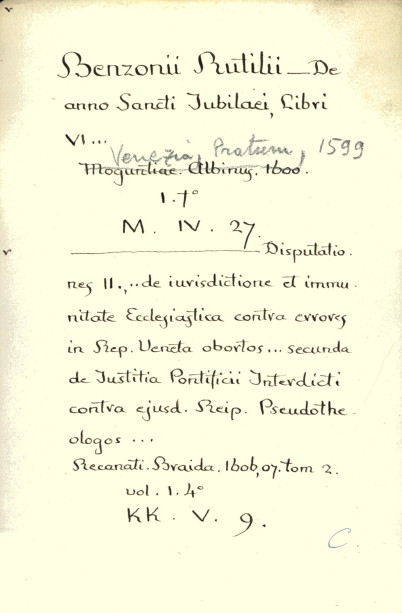 Benzonii Rutilii — De
anno Sancti Jubilaei, Libri
VI...
Venezia, Pratum, 1599
Moguntiae. Albinus. 1600.
1. f°
M. IV. 27.
Disputatio.
nes II.,.. de iurisdictione et immu.
nitate Ecclesiastica contra errores
in Rep. Veneta obortos... secunda
de Justitia Pontificii Interdicti
contra ejusd. Reip. Pseudothe.
ologos ...
Recanati. Braida. 1606,07. tom 2.
vol. 1. 4°
KK. V. 9.
C.